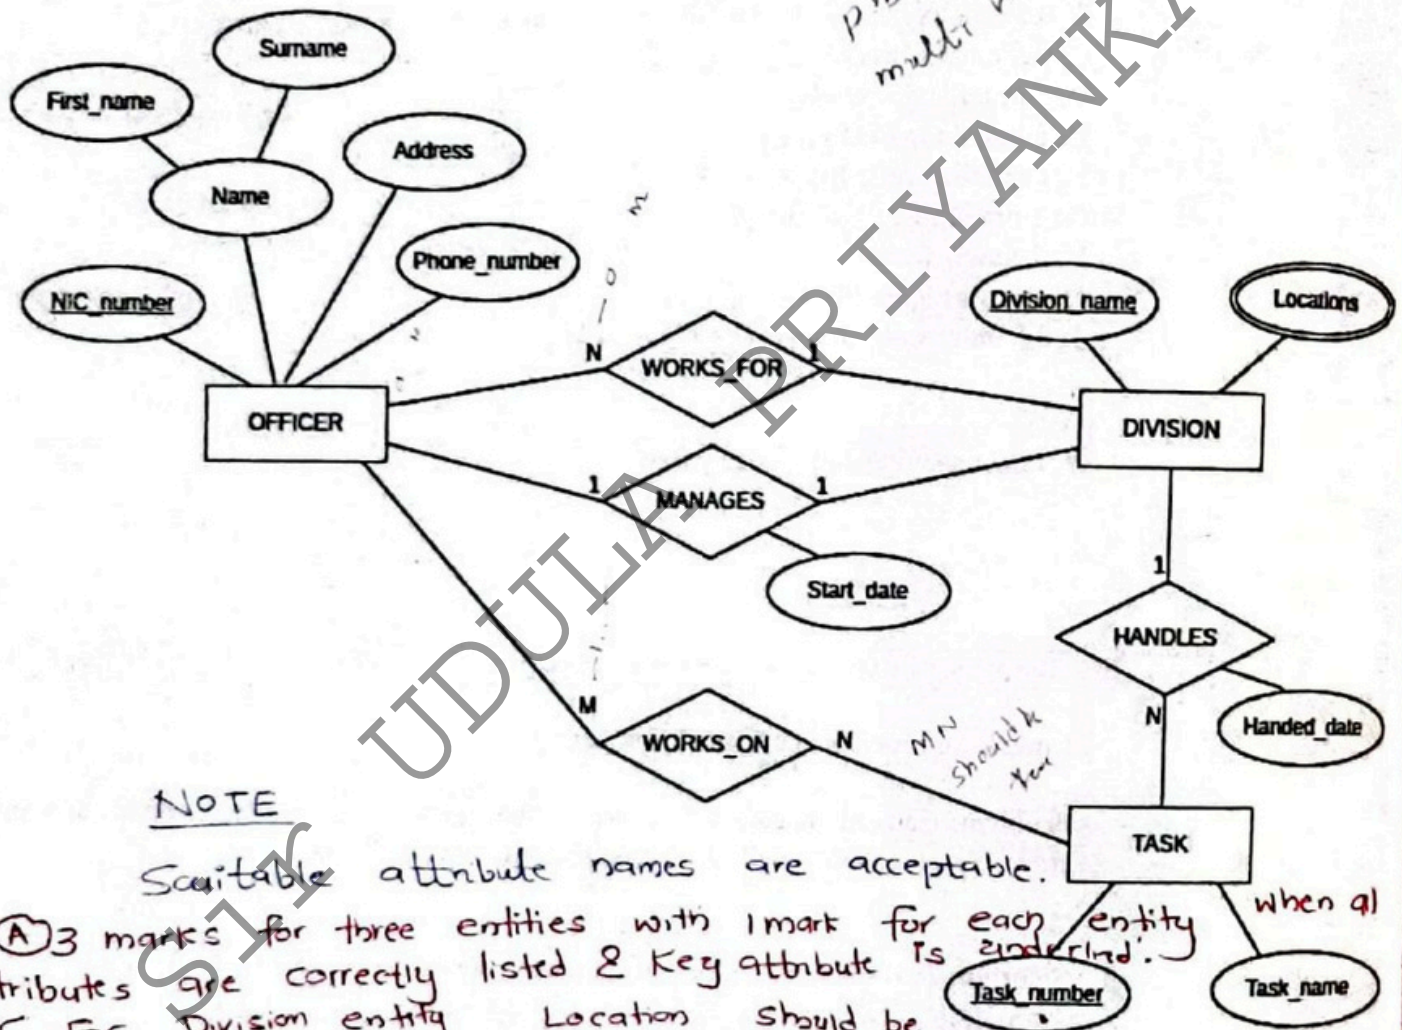 multi
Surname
First_name
Address
Name
Phone_number
NIC_number
Division_name
Locations
N
WORKS_FOR
1
OFFICER
DIVISION
1
MANAGES
1
Start_date
1
HANDLES
N
Handed_date
M
WORKS_ON
N
MN
should
TASK
Task_number
Task_name
NOTE
Scuitable attribute names are acceptable.
A 3 marks for three entities with 1 mark for each entity when al
tributes are correctly listed & Key attribute is underlind.
For Division entity Location should be
Sir UDULA PRIYANKA